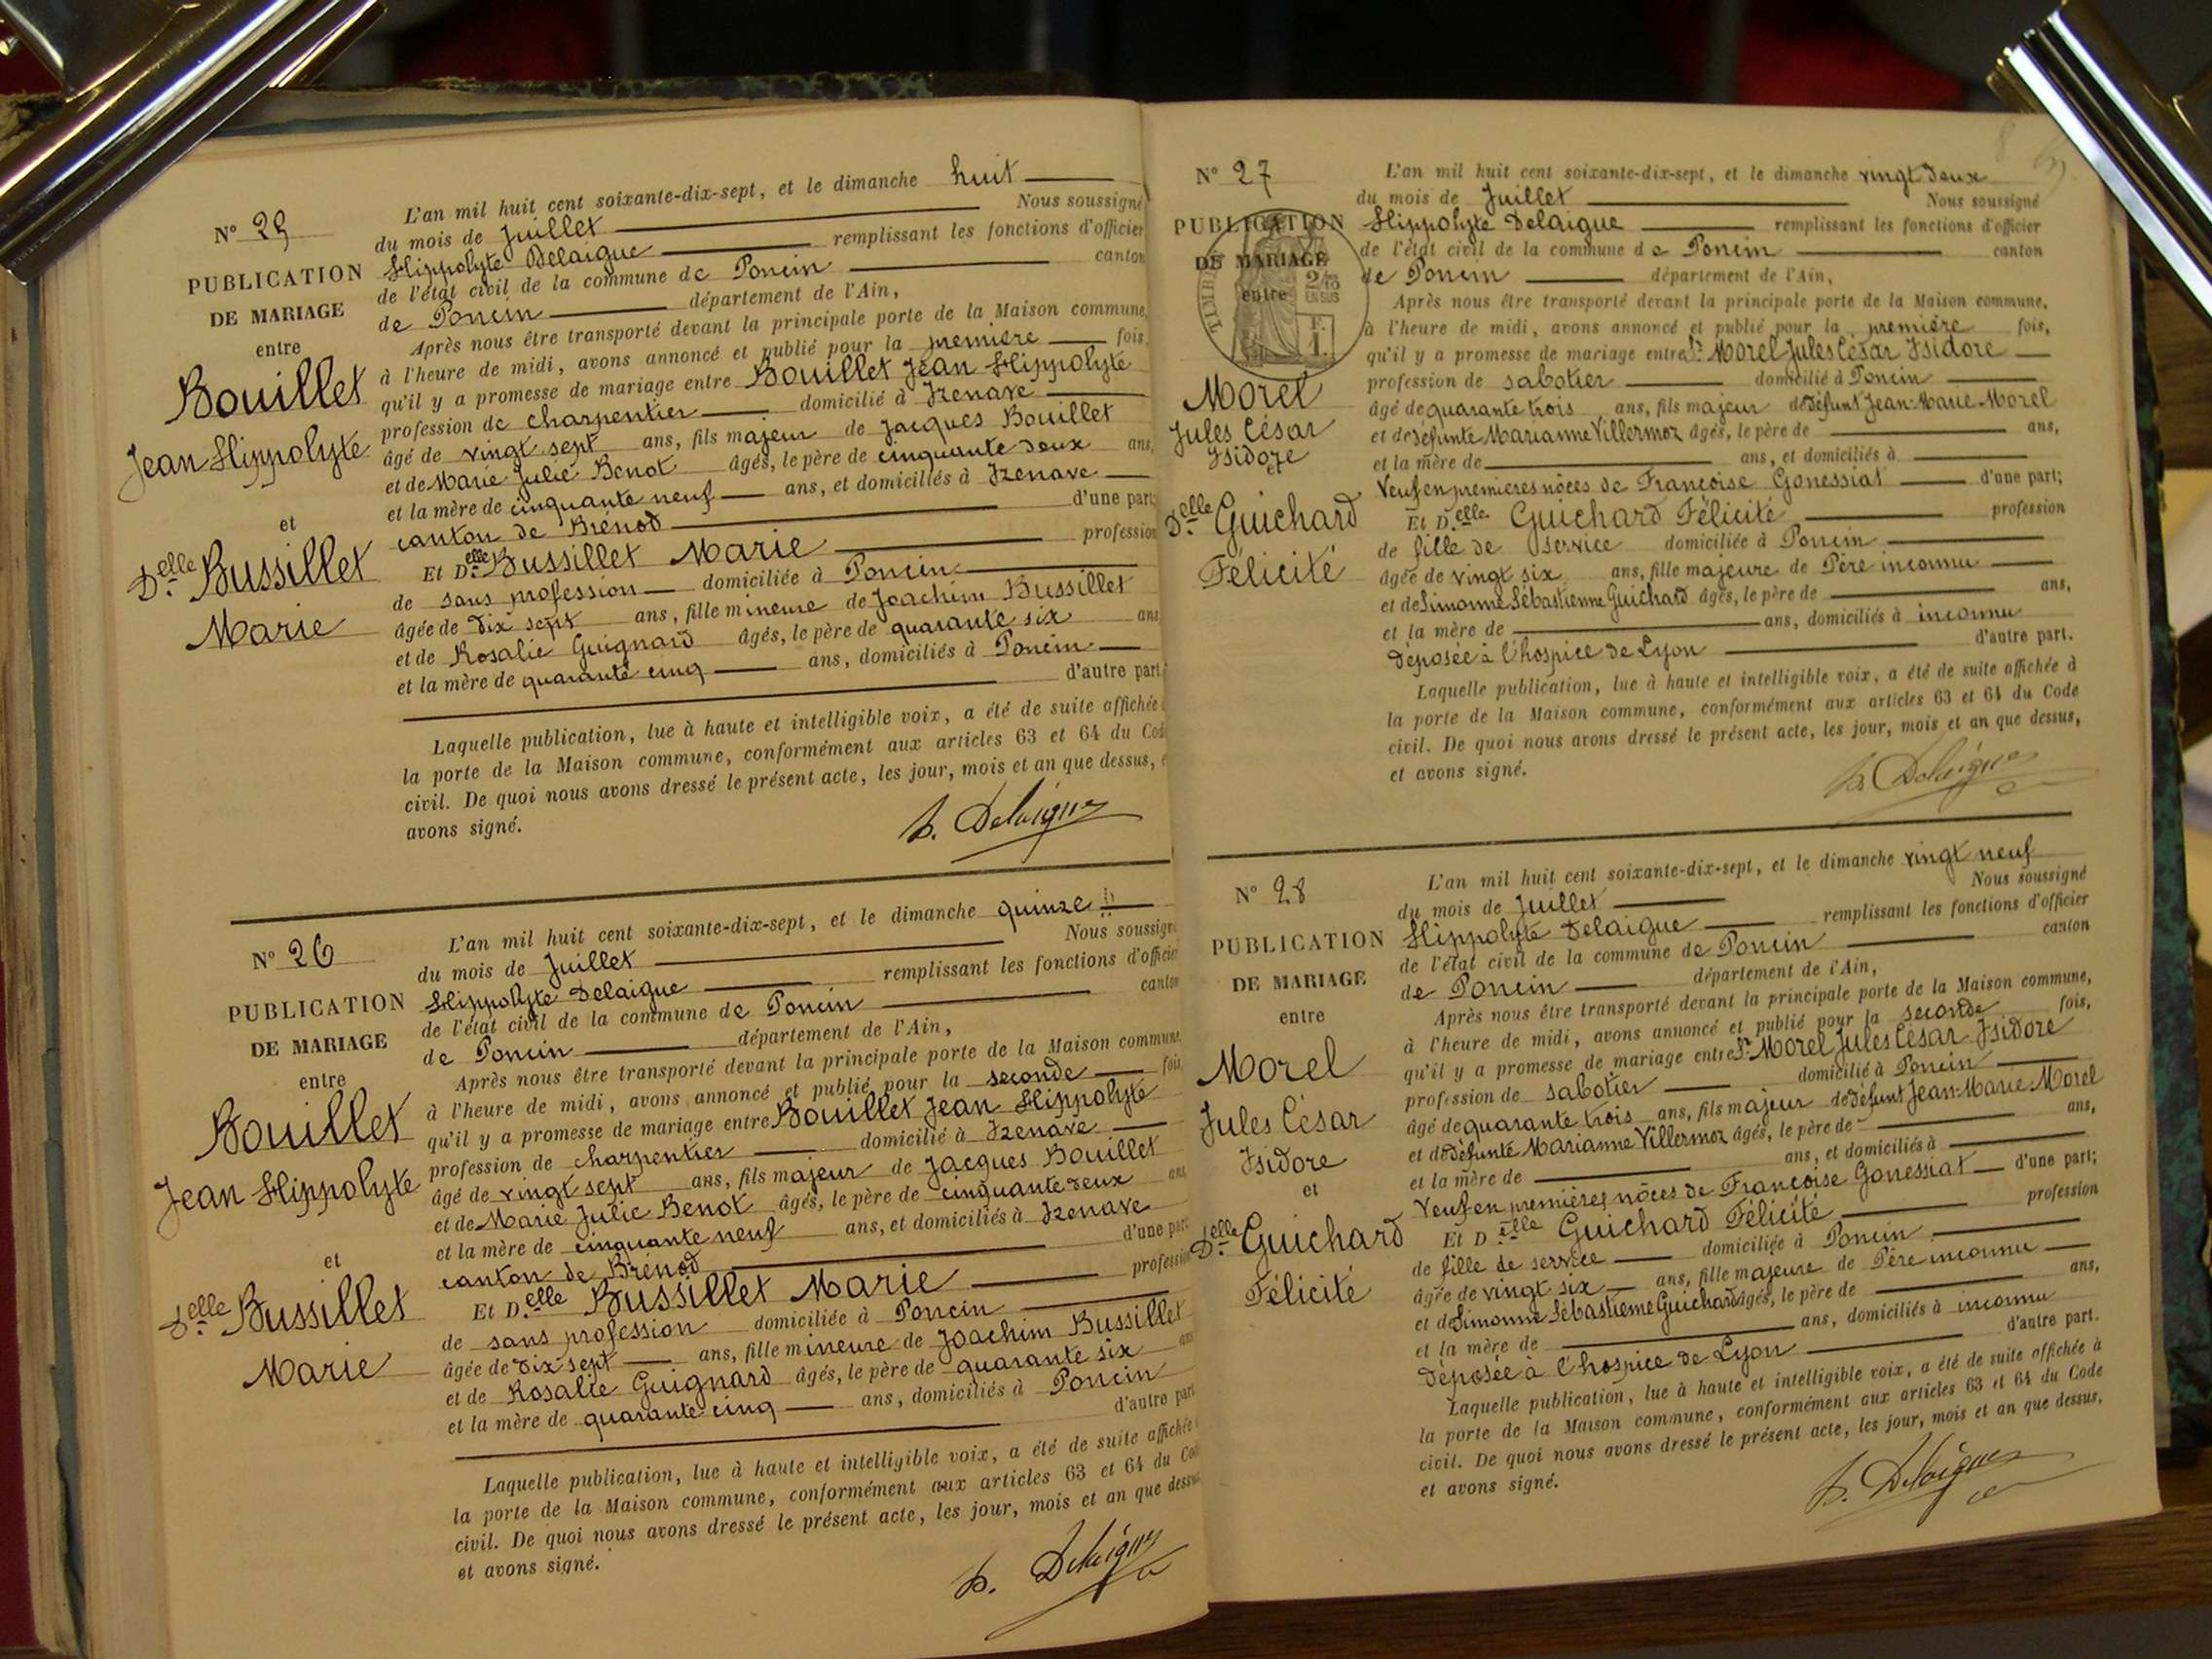 N° 25
PUBLICATION
DE MARIAGE
entre
Bouillet
Jean Hippolyte
et
Delle Bussillet
Marie
L'an mil huit cent soixante-dix-sept, et le dimanche huit
du mois de Juillet Nous soussigné
Hippolyte Delaigue remplissant les fonctions d'officier
de l'état civil de la commune de Poncin canton
de Poncin département de l'Ain,
Après nous être transporté devant la principale porte de la Maison commune,
à l'heure de midi, avons annoncé et publié pour la première fois,
qu'il y a promesse de mariage entre Bouillet Jean Hippolyte
profession de charpentier domicilié à Izenave
âgé de vingt sept ans, fils majeur de Jacques Bouillet
et de Marie Julie Benot âgés, le père de cinquante deux ans,
et la mère de cinquante neuf ans, et domiciliés à Izenave
canton de Brénod d'une part;
Et Delle Bussillet Marie profession
de sans profession domiciliée à Poncin
âgée de dix sept ans, fille mineure de Joachim Bussillet
et de Rosalie Guignard âgés, le père de quarante six ans
et la mère de quarante cinq ans, domiciliés à Poncin
d'autre part.
Laquelle publication, lue à haute et intelligible voix, a été de suite affichée
la porte de la Maison commune, conformément aux articles 63 et 64 du Code
civil. De quoi nous avons dressé le présent acte, les jour, mois et an que dessus,
avons signé.
h. Delaigue
N° 26
PUBLICATION
DE MARIAGE
entre
Bouillet
Jean Hippolyte
et
Delle Bussillet
Marie
L'an mil huit cent soixante-dix-sept, et le dimanche quinze
du mois de Juillet Nous soussigné
Hippolyte Delaigue remplissant les fonctions d'officier
de l'état civil de la commune de Poncin canton
de Poncin département de l'Ain,
Après nous être transporté devant la principale porte de la Maison commune,
à l'heure de midi, avons annoncé et publié pour la seconde fois,
qu'il y a promesse de mariage entre Bouillet Jean Hippolyte
profession de charpentier domicilié à Izenave
âgé de vingt sept ans, fils majeur de Jacques Bouillet
et de Marie Julie Benot âgés, le père de cinquante deux ans
et la mère de cinquante neuf ans, et domiciliés à Izenave
canton de Brénod d'une part
Et Delle Bussillet Marie profession
de sans profession domiciliée à Poncin
âgée de dix sept ans, fille mineure de Joachim Bussillet
et de Rosalie Guignard âgés, le père de quarante six ans
et la mère de quarante cinq ans, domiciliés à Poncin
d'autre part
Laquelle publication, lue à haute et intelligible voix, a été de suite affichée
la porte de la Maison commune, conformément aux articles 63 et 64 du Code
civil. De quoi nous avons dressé le présent acte, les jour, mois et an que dessus
et avons signé.
h. Delaigue
N° 27
PUBLICATION
DE MARIAGE
entre
TIMBRE
2/10
EN SUS
F.
1.
Morel
Jules César
Isidore
et
Delle Guichard
Félicité
L'an mil huit cent soixante-dix-sept, et le dimanche vingt deux
du mois de Juillet Nous soussigné
Hippolyte Delaigue remplissant les fonctions d'officier
de l'état civil de la commune de Poncin canton
de Poncin département de l'Ain,
Après nous être transporté devant la principale porte de la Maison commune,
à l'heure de midi, avons annoncé et publié pour la première fois,
qu'il y a promesse de mariage entre Sr Morel Jules César Isidore
profession de sabotier domicilié à Poncin
âgé de quarante trois ans, fils majeur de défunt Jean-Marie Morel
et de défunte Marianne Villermoz âgés, le père de ans,
et la mère de ans, et domiciliés à
Veuf en premieres nôces de Francoise Gonessiat d'une part;
Et Delle Guichard Félicité profession
de fille de service domiciliée à Poncin
âgée de vingt six ans, fille majeure de Père inconnu
et de Simonne Sébastienne Guichard âgés, le père de ans,
et la mère de ans, domiciliés à inconnu
déposée à l'hospice de Lyon d'autre part.
Laquelle publication, lue à haute et intelligible voix, a été de suite affichée à
la porte de la Maison commune, conformément aux articles 63 et 64 du Code
civil. De quoi nous avons dressé le présent acte, les jour, mois et an que dessus,
et avons signé.
h. Delaigue
N° 28
PUBLICATION
DE MARIAGE
entre
Morel
Jules César
Isidore
et
Delle Guichard
Félicité
L'an mil huit cent soixante-dix-sept, et le dimanche vingt neuf
du mois de Juillet Nous soussigné
Hippolyte Delaigue remplissant les fonctions d'officier
de l'état civil de la commune de Poncin canton
de Poncin département de l'Ain,
Après nous être transporté devant la principale porte de la Maison commune,
à l'heure de midi, avons annoncé et publié pour la seconde fois,
qu'il y a promesse de mariage entre Sr Morel Jules César Isidore
profession de sabotier domicilié à Poncin
âgé de quarante trois ans, fils majeur de défunt Jean-Marie Morel
et de défunte Marianne Villermoz âgés, le père de ans,
et la mère de ans, et domiciliés à
Veuf en premières nôces de Francoise Gonessiat d'une part;
Et Delle Guichard Félicité profession
de fille de service domiciliée à Poncin
âgée de vingt six ans, fille majeure de Père inconnu
et de Simonne Sébastienne Guichard âgés, le père de ans,
et la mère de ans, domiciliés à inconnu
déposée à l'hospice de Lyon d'autre part.
Laquelle publication, lue à haute et intelligible voix, a été de suite affichée à
la porte de la Maison commune, conformément aux articles 63 et 64 du Code
civil. De quoi nous avons dressé le présent acte, les jour, mois et an que dessus,
et avons signé.
h. Delaigue